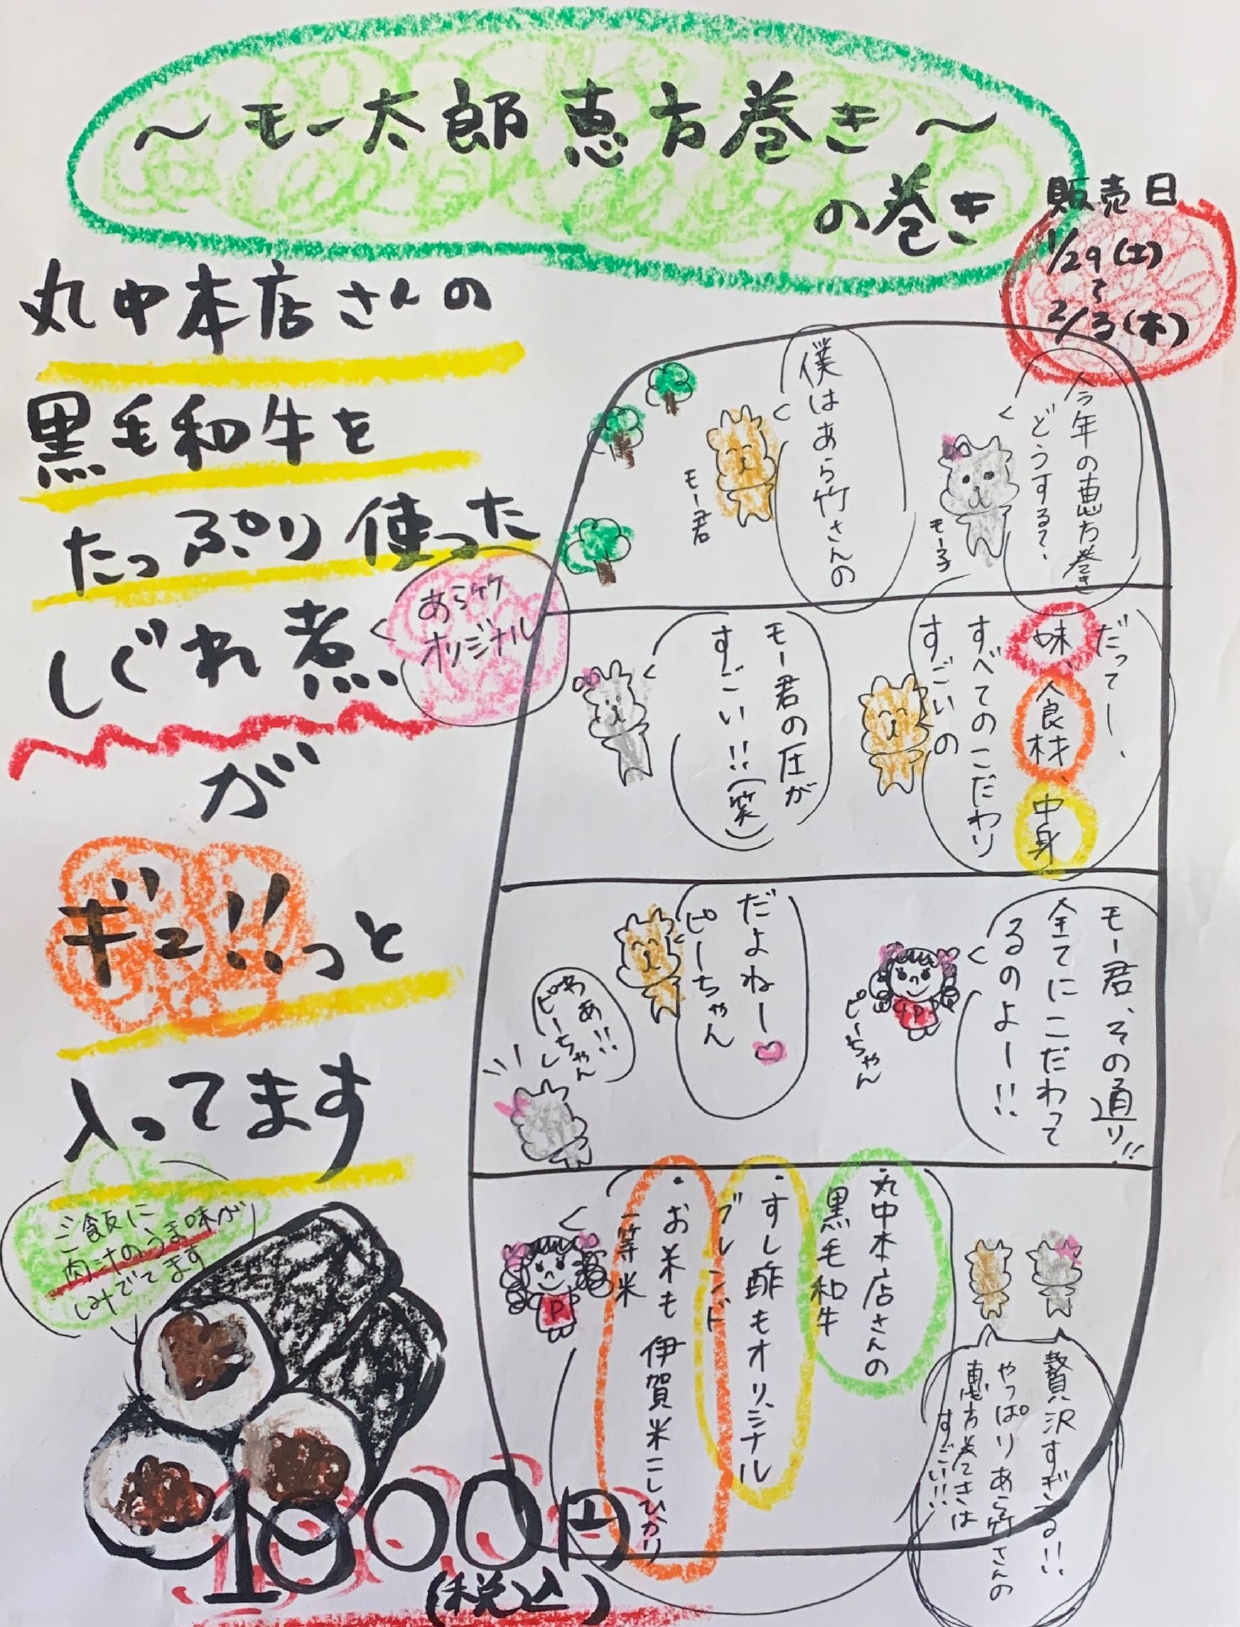 ～モー太郎恵方巻き～
の巻き
販売日
1/29(土)
～
2/3(木)
丸中本店さんの
黒毛和牛を
たっぷり使った
しぐれ煮
あら竹
オリジナル
が
ギュ!!っと
入ってます
ご飯に
肉汁のうま味が
しみでてます
1000円
(税込)
今年の恵方巻き
どうする?、
モー子
僕はあら竹さんの
モー君
だってー、
味、食材、中身
すべてのこだわり
すごいの
モー君の圧が
すごい!!(笑)
モー君、その通り!!
全てにこだわって
るのよー!!
ピーちゃん
だよねー
ピーちゃん
わぁ!!
ピーちゃん
贅沢すぎる!!
やっぱりあら竹さんの
恵方巻てきは
すごい!!
・丸中本店さんの
黒毛和牛
・すし酢もオリジナル
ブレンド
・お米も伊賀米こしひかり
一等米
P